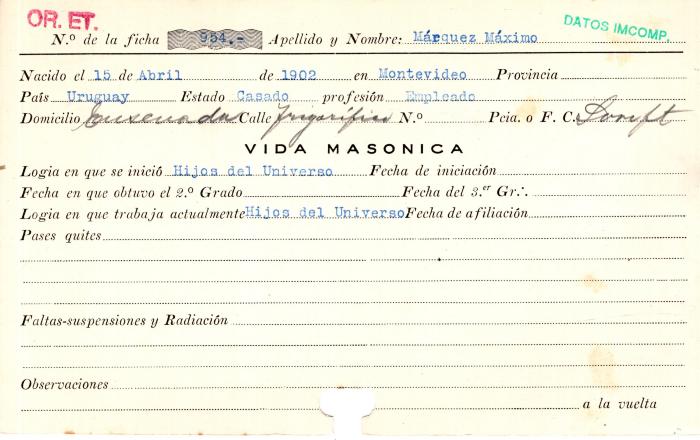 OR. ET.
DATOS IMCOMP.
N.º de la ficha 954.- Apellido y Nombre: Márquez Máximo
Nacido el 15 de Abril de 1902 en Montevideo Provincia
País Uruguay Estado Casado profesión Empleado
Domicilio Ensenada Calle Frigorífico N.º Pcia. o F. C. Swift
VIDA MASONICA
Logia en que se inició Hijos del Universo Fecha de iniciación
Fecha en que obtuvo el 2.º Grado Fecha del 3.er Gr∴
Logia en que trabaja actualmente Hijos del Universo Fecha de afiliación
Pases quites
Faltas-suspensiones y Radiación
Observaciones
a la vuelta